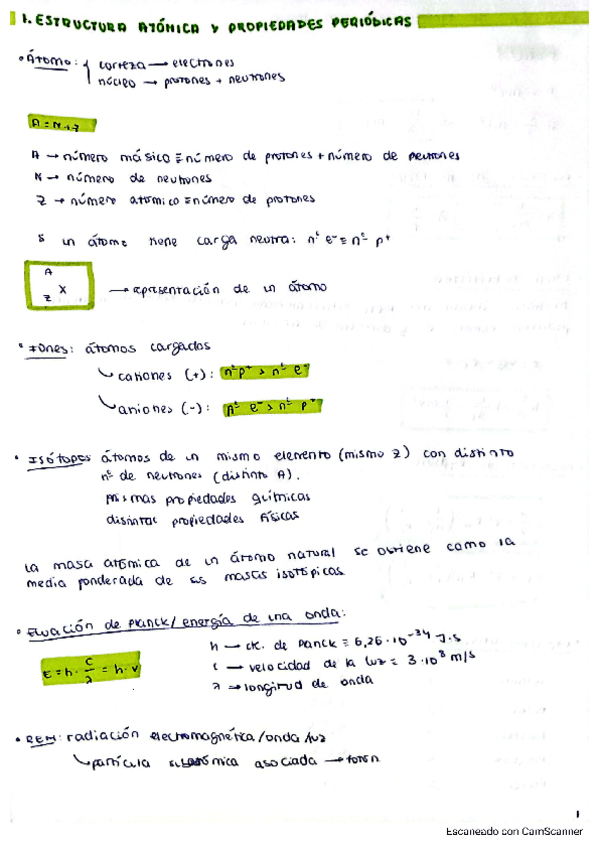 1. ESTRUCTURA ATÓMICA Y PROPIEDADES PERIÓDICAS
• Átomo: corteza → electrones
núcleo → protones + neutrones
A = N + Z
A → número másico ≡ número de protones + número de neutrones
N → número de neutrones
Z → número atómico ≡ número de protones
Si un átomo tiene carga neutra: nº e⁻ ≡ nº p⁺
A
X
Z
→ representación de un átomo
• Iones: átomos cargados
cationes (+): nº p⁺ > nº e⁻
aniones (-): nº e⁻ > nº p⁺
• Isótopos átomos de un mismo elemento (mismo Z) con distinto
nº de neutrones (distinto A).
Mismas propiedades químicas
distintas propiedades físicas
La masa atómica de un átomo natural se obtiene como la
media ponderada de sus masas isotópicas
• Ecuación de Planck / energía de una onda:
h → ck. de Planck ≡ 6,26 · 10⁻³⁴ J·s
E = h · c/λ = h · ν
c → velocidad de la luz = 3 · 10⁸ m/s
λ → longitud de onda
• REM: radiación electromagnética/onda/luz
partícula subatómica asociada → fotón
1
Escaneado con CamScanner